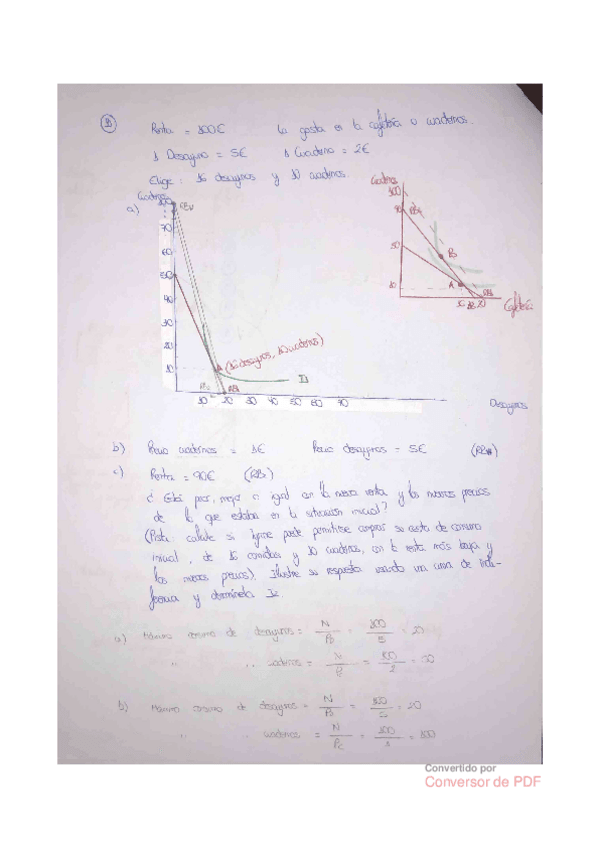 Renta = 100€ La gasta en la cafetería o cuadernos.
1 Desayuno = 5€ 1 Cuaderno = 2€
Elige: 16 desayunos y 10 cuadernos.
a)
Cuadernos
100
70
60
50
40
30
20
10
A (16 desayunos, 10 cuadernos)
10 20 30 40 50 60 70
Desayunos
Cuadernos
100
90
50
10
B
A
Cafetería
b) Precio cuadernos = 1€ Precio desayunos = 5€
c) Renta = 90€
¿Está peor, mejor o igual con la nueva renta y los nuevos precios
de lo que estaba en la situación inicial?
(Pista: calcule si Igone puede permitirse comprar su cesta de consumo
inicial, de 16 comidas y 10 cuadernos, con la renta más baja y
los nuevos precios). Ilustre su respuesta usando una curva de indi-
ferencia y
a) Máximo consumo de desayunos = = 100 / 5 = 20
" " cuadernos = = 100 / 2 = 50
b) Máximo consumo de desayunos = = 100 / 5 = 20
" " cuadernos = = 100 / 1 = 100
Convertido por
Conversor de PDF